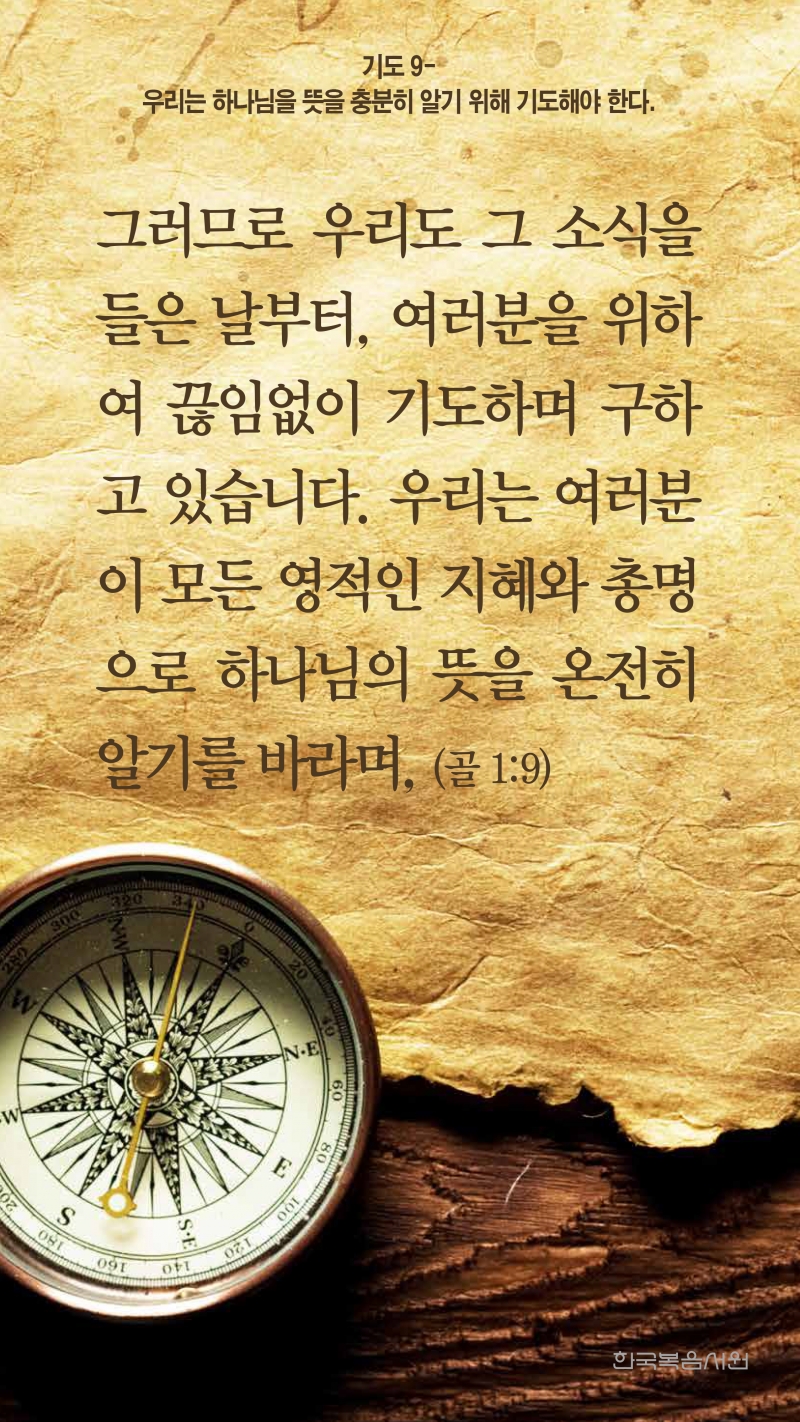 기도 9-
우리는 하나님을 뜻을 충분히 알기 위해 기도해야 한다.
그러므로 우리도 그 소식을
들은 날부터, 여러분을 위하
여 끊임없이 기도하며 구하
고 있습니다. 우리는 여러분
이 모든 영적인 지혜와 총명
으로 하나님의 뜻을 온전히
알기를 바라며, (골 1:9)
280
300
320
340
0
20
40
60
80
100
120
140
160
180
200
W
N·E
E
S·E
S
한국복음서원